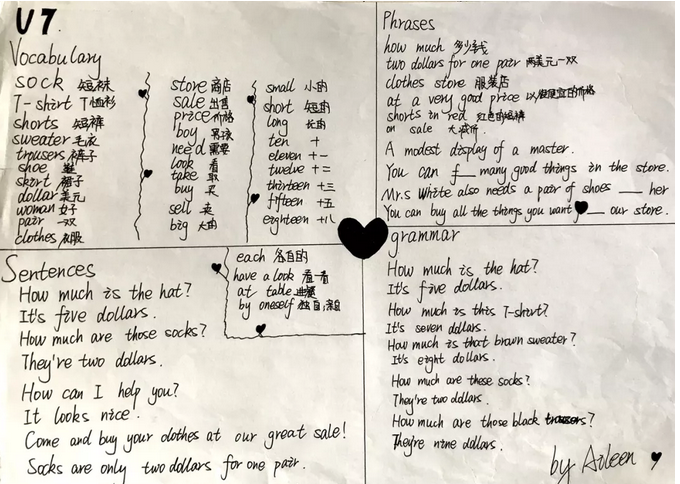 U7.
Vocabulary
sock 短袜
T-shirt T恤衫
shorts 短裤
sweater 毛衣
trousers 裤子
shoe 鞋
skirt 裙子
dollar 美元
woman 女子
pair 一双
clothes 衣服
store 商店
sale 出售
price 价格
boy 男孩
need 需要
look 看
take 取
buy 买
sell 卖
big 大的
small 小的
short 短的
long 长的
ten 十
eleven 十一
twelve 十二
thirteen 十三
fifteen 十五
eighteen 十八
each 各自的
have a look 看一看
at table
by oneself 独自;亲自
Phrases
how much 多少钱
two dollars for one pair 两美元一双
clothes store 服装店
at a very good price 以很便宜的价格
shorts in red 红色的短裤
on sale 大减价.
A modest display of a master.
You can f__ many good things in the store.
Mr.s White also needs a pair of shoes __ her
You can buy all the things you want __ our store.
Sentences
How much is the hat?
It's five dollars.
How much are those socks?
They're two dollars.
How can I help you?
It looks nice.
Come and buy your clothes at our great sale!
Socks are only two dollars for one pair.
grammar
How much is the hat?
It's five dollars.
How much is this T-shirt?
It's seven dollars.
How much is that brown sweater?
It's eight dollars.
How much are these socks?
They're two dollars.
How much are those black trousers?
They're nine dollars.
by Aileen